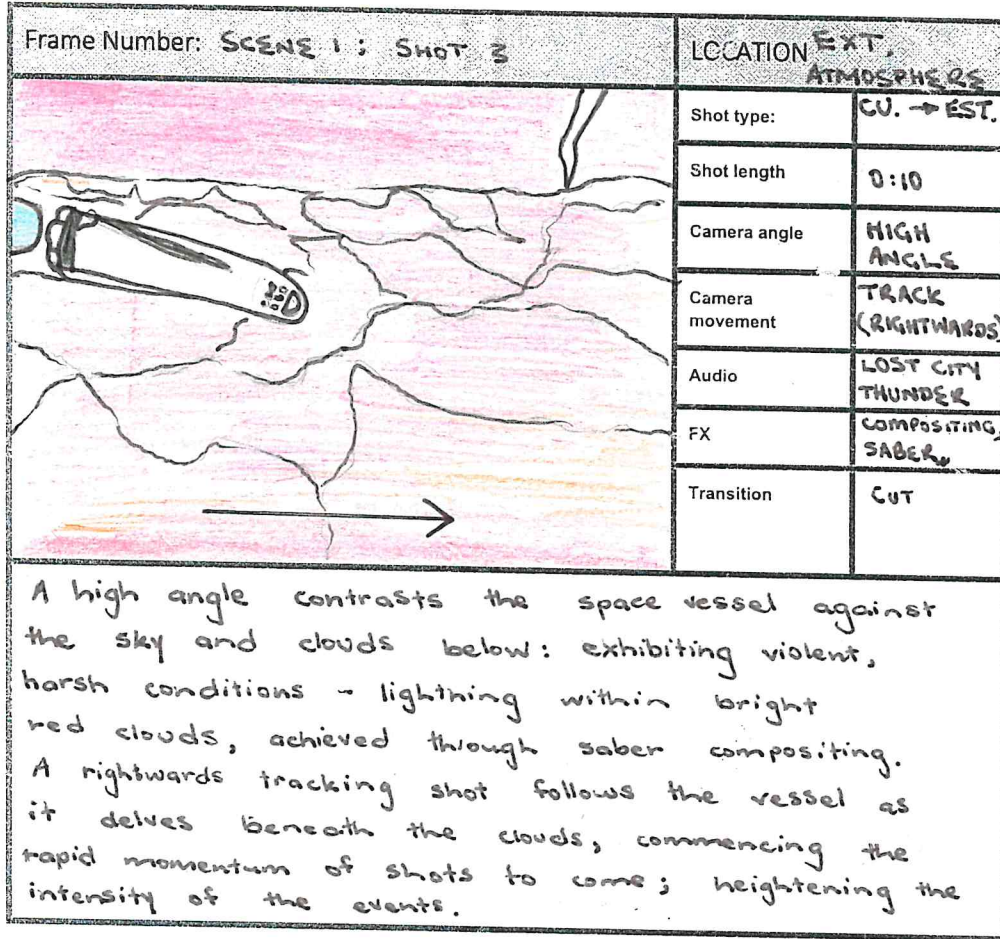 Frame Number: SCENE 1 ; SHOT 3
LOCATION EXT.
ATMOSPHERE
Shot type: CU. → EST.
Shot length 0:10
Camera angle HIGH
ANGLE
Camera TRACK
movement (RIGHTWARDS)
Audio LOST CITY
THUNDER
FX COMPOSITING,
SABER
Transition CUT
A high angle contrasts the space vessel against
the sky and clouds below: exhibiting violent,
harsh conditions - lightning within bright
red clouds, achieved through saber compositing.
A rightwards tracking shot follows the vessel as
it delves beneath the clouds, commencing the
rapid momentum of shots to come; heightening the
intensity of the events.